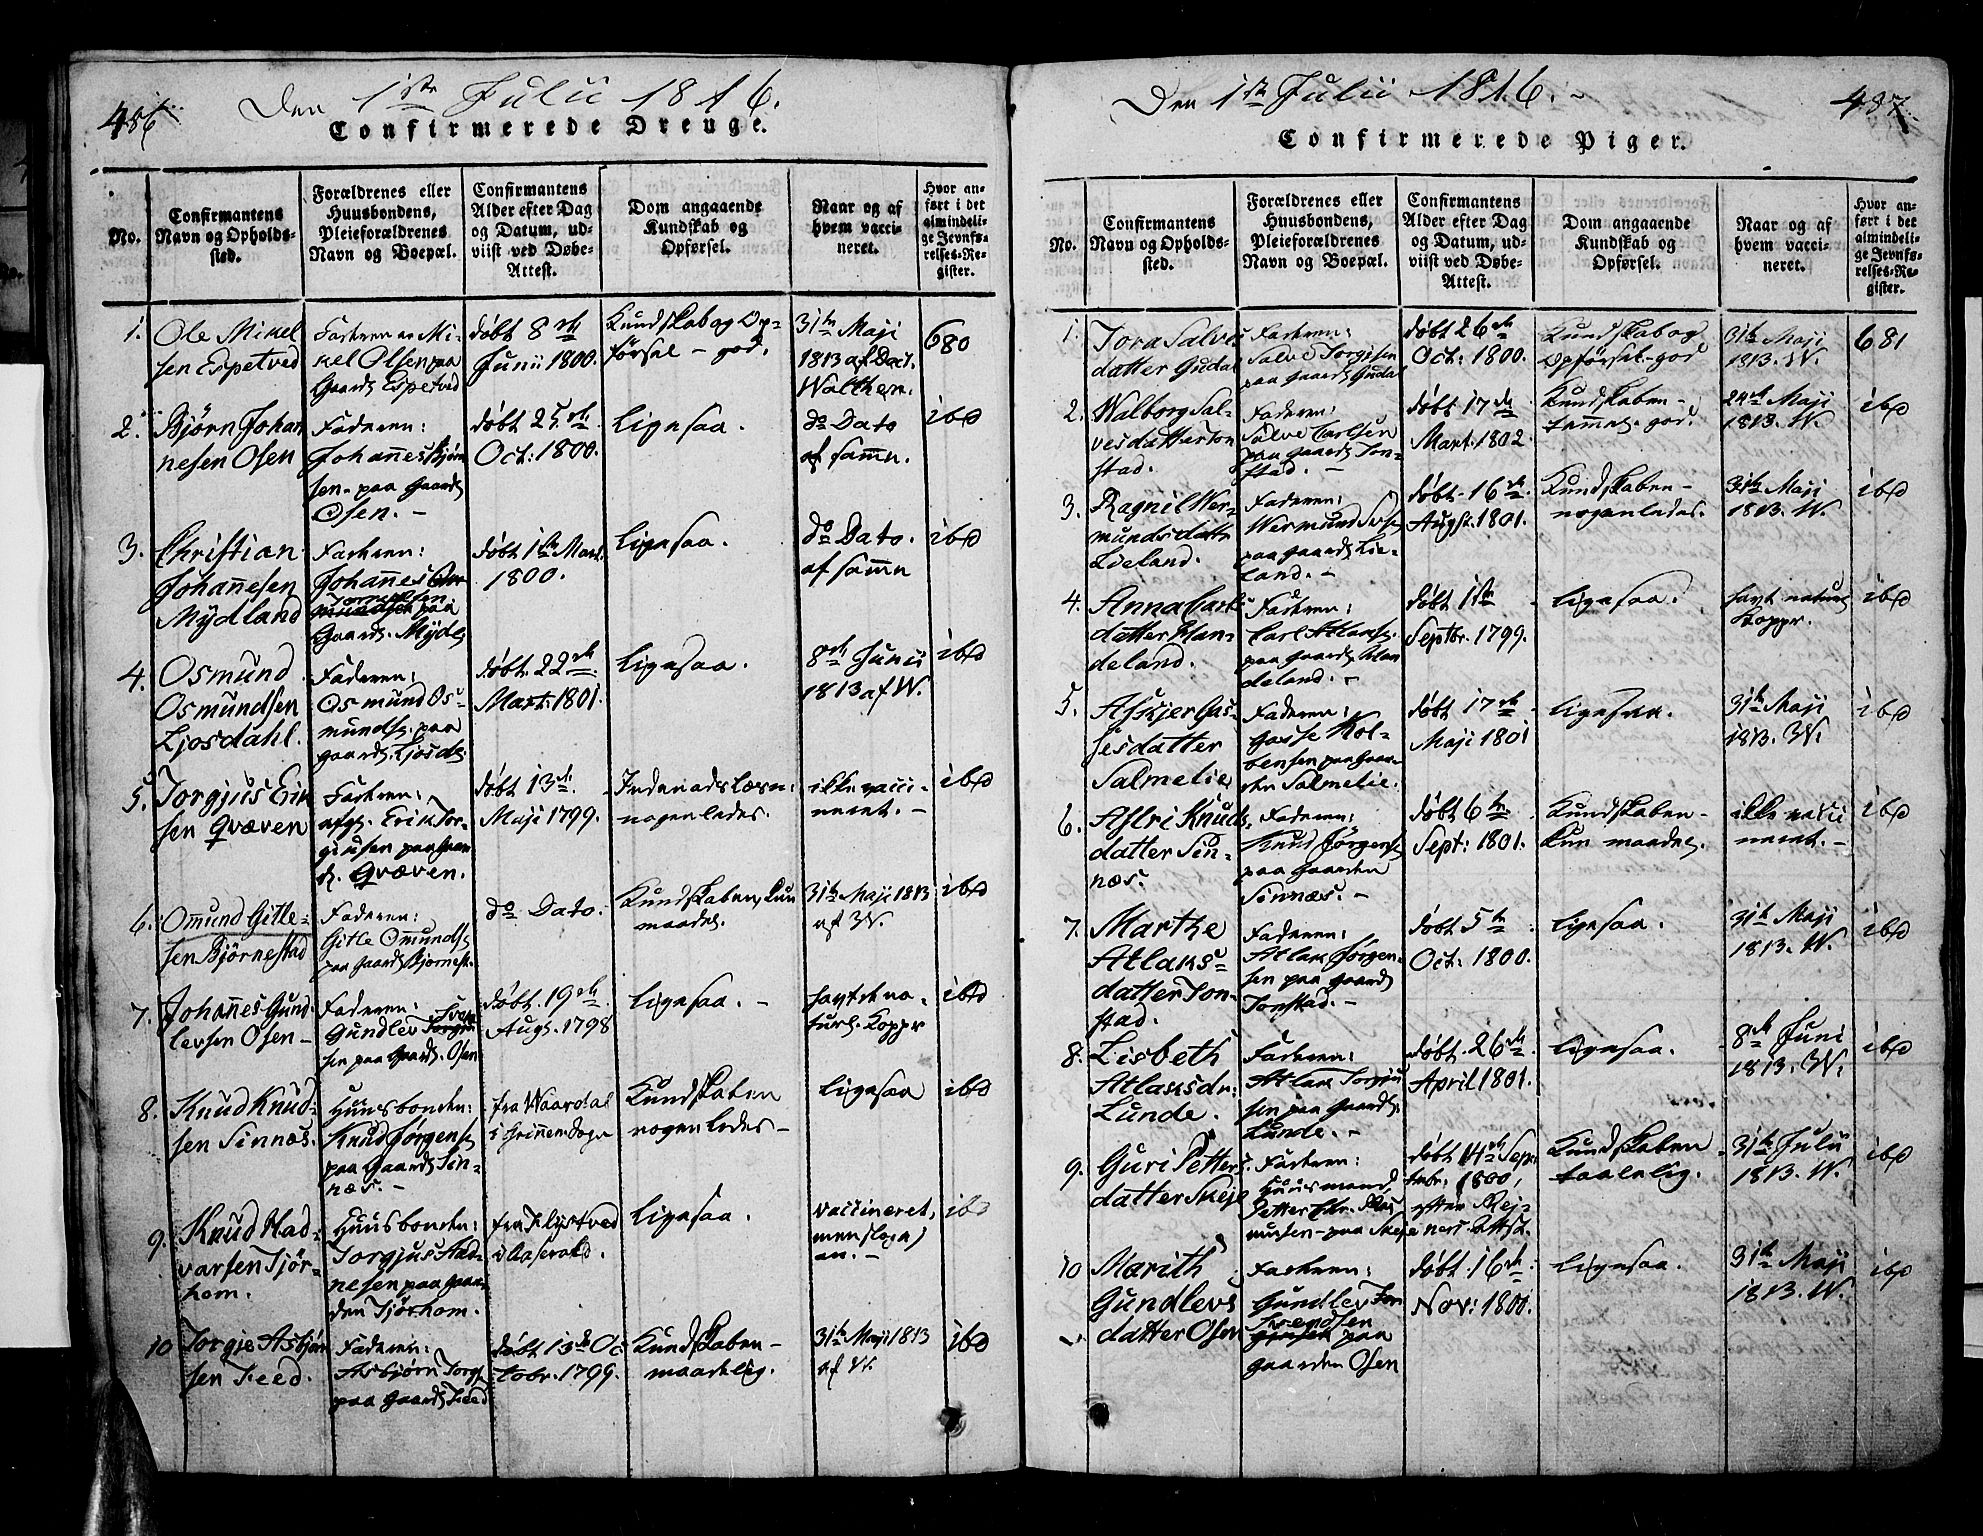 486
Den 1ste Julii 1816.
Confirmerede Drenge.
No.
Confirmantens
Navn og Opholds-
sted.
Forældrenes eller
Huusbondens,
Pleieforældrenes
Navn og Boepæl.
Confirmantens
Alder efter Dag
og Datum, ud-
viist ved Døbe-
Attest.
Dom angaaende
Kundskab og
Opførsel.
Naar og af
hvem vacci-
neret.
Hvor an-
ført i det
almindeli-
ge Jevnfø-
relses-Re-
gister.
1.
Ole Mikel
sen Espetved
Faderen er Mi-
kel Olsen paa
Gaard. Espetved
døbt 8de
Junii 1800.
Kundskab og Op-
førsel - god.
31te Maji
1813 af Doct.
Walther.
680
2.
Bjørn Johan
nesen Osen
Faderen:
Johannes Bjørn
sen - paa Gaard.
Osen. -
døbt 25de
Oct: 1800.
Ligesaa.
do Dato
af samme.
ibd
3.
Christian
Johannesen
Mydland
Faderen:
Johannes
paa
Gaard. Mydl.
døbt 1ste Mart.
1800.
Ligesaa.
do Dato.
af samme
ibd
4.
Osmund
Osmundsen
Ljosdahl.
Faderen:
Osmund Os-
munds. paa
gaard. Ljosda.
døbt. 22de
Mart: 1801.
Ligesaa.
8de Junii
1813 af W.
ibd
5.
Torgjus Erik
sen Qvæven
Faderen:
afg. Erik Tor-
giusen paa Gaar
d. Qvæven.
døbt 13de
Maji 1799.
Indenadslæsn:
nogenledes.
ikke vacci
neret. -
ibd
6.
Omund Gitle-
sen Bjørnestad
Faderen:
Gitle Omunds.
paa Gaard. Bjørnest.
do Dato.
Kundskaben kun
maadel.
31te Maji 1813
af W.
ibd
7.
Johannes Gund
levsen Osen -
Faderen:
Gundlev
sen paa Gaard. Osen
døbt. 19de
Augs. 1798
Ligesaa. -
havt de na-
turl. Kopper
ibd
8.
Knud Knud-
sen Sinnæs.
Huusbonden:
Knud Jørgens.
paa Gaard. Sin-
næs. -
fra Waardal
Kundskaben
nogenledes -
Ligesaa
ibd
9.
Knud Had-
varsen Tjør-
hom.
Huusbonden:
Torgjus Aad-
nesen paa Gaar
den Tjørhom.
fra Flystved
i Aaserald.
Ligesaa.
vaccineret,
ibd
10
Torgje Asbjørn
sen Feed.
Faderen:
Asbjørn Torgs.
paa Gaard. Feed
døbt 13de Oc
tobr. 1799.
Kundskaben -
maadelig.
31te Maji 1813
af W.
ibd
487
Den 1ste Julii 1816. -
Confirmerede Piger.
No.
Confirmantens
Navn og Opholds-
sted.
Forældrenes eller
Huusbondens,
Pleieforældrenes
Navn og Boepæl.
Confirmantens
Alder efter Dag
og Datum, ud-
viist ved Døbe-
Attest.
Dom angaaende
Kundskab og
Opførsel.
Naar og af
hvem vacci-
neret.
Hvor an-
ført i det
almindeli-
ge Jevnfø-
relses-Re-
gister.
1.
Tora Salves
datter Gudal
Faderen:
Salve Torgisen
paa Gaard. Gudal
døbt 26de
Oct: 1800.
Kundskab og
Opførsel - god
31te Maji
1813. W.
681
2.
Walborg Sal-
vesdatter Ton
stad.
Faderen:
Salve Carlsen
paa Gaard. Ton-
stad. -
døbt 17de
Mart. 1802.
Kundskaben -
temmel. god.
24de Maji
1813. W.
ibd
3.
Ragnil Wer-
mundsdatter
Lieland.
Faderen:
Wermund
paa Gaard. Lie-
land. -
døbt. 16de
Augs. 1801.
Kundskaben -
nogenledes.
31te Maji
1813. W.
ibd
4.
Anna Carls
datter Han-
deland.
Faderen:
Carl Atlaks.
paa Gaard. Han
deland. -
døbt 1ste
Septbr. 1799.
Ligesaa.
havt naturl
Kopper.
ibd
5.
Askjer Gas-
sesdatter
Salmelie
Faderen:
Gasse Kol-
bensen paa Gaar-
den Salmelie.
døbt 17de
Maji 1801
Ligesaa.
31te Maji
1813. W.
ibd
6.
Astri Knuds
datter Sin-
næs.
Faderen:
Knud Jørgens.
paa Gaarden
Sinnæs. -
døbt 6te
Sept: 1801.
Kundskaben -
kun maadel.
ikke vacci
neret. -
ibd
7.
Marthe
Atlaks-
datter Ton-
stad.
Faderen:
Atlak Jørgen-
sen paa Gaard.
Tonstad. -
døbt 5te
Oct: 1800.
Ligesaa.
31te Maji
1813. W.
ibd
8.
Lisbeth
Atlaksdr:
Lunde.
Faderen:
Atlak Torgju
sen paa Gaard.
Lunde. -
døbt. 26de
April 1801.
Ligesaa.
8de Juni
1813. W.
ibd
9.
Guri Petters
datter Skeje
Faderen:
Huusmand
Petter Chr. Ras
mussen - paa Skeje
døbt 14de Sep
tbr. 1800,
efter Rej-
ners Attst.
Kundskaben
taalelig.
31te Julii
1813. W.
ibd
10
Marith
Gundlevs
datter Osen
Faderen:
Gundlev
Svendsen
paa
gaarden Osen
døbt. 16de
Nov: 1800.
Ligesaa.
31te Maji
1813. W.
ibd